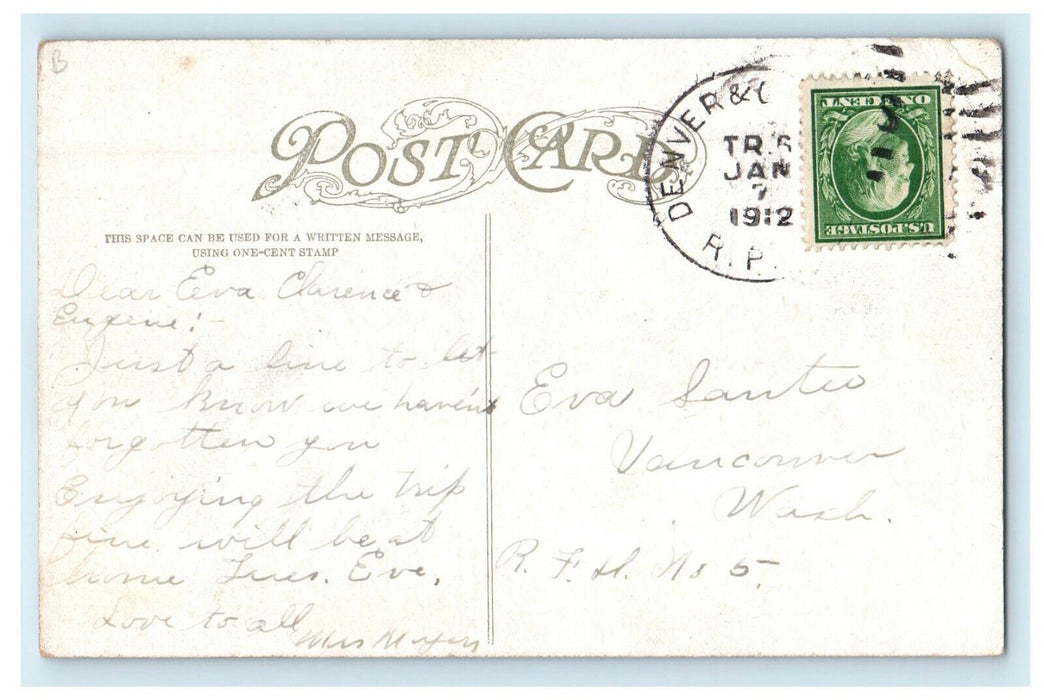 B
POST CARD
DENVER & 
TR. 6
JAN
7
1912
R.P.
U.S. POSTAGE
ONE CENT
THIS SPACE CAN BE USED FOR A WRITTEN MESSAGE,
USING ONE-CENT STAMP
Dear Eva Clarence &
Eugene:-
Just a line to let
you know we haven't
forgotten you
Enjoying the trip
fine will be at
home Tues. Eve,
Love to all
Mrs Meyers
Eva Santee
Vancouver
Wash.
R. F. D. No 5.